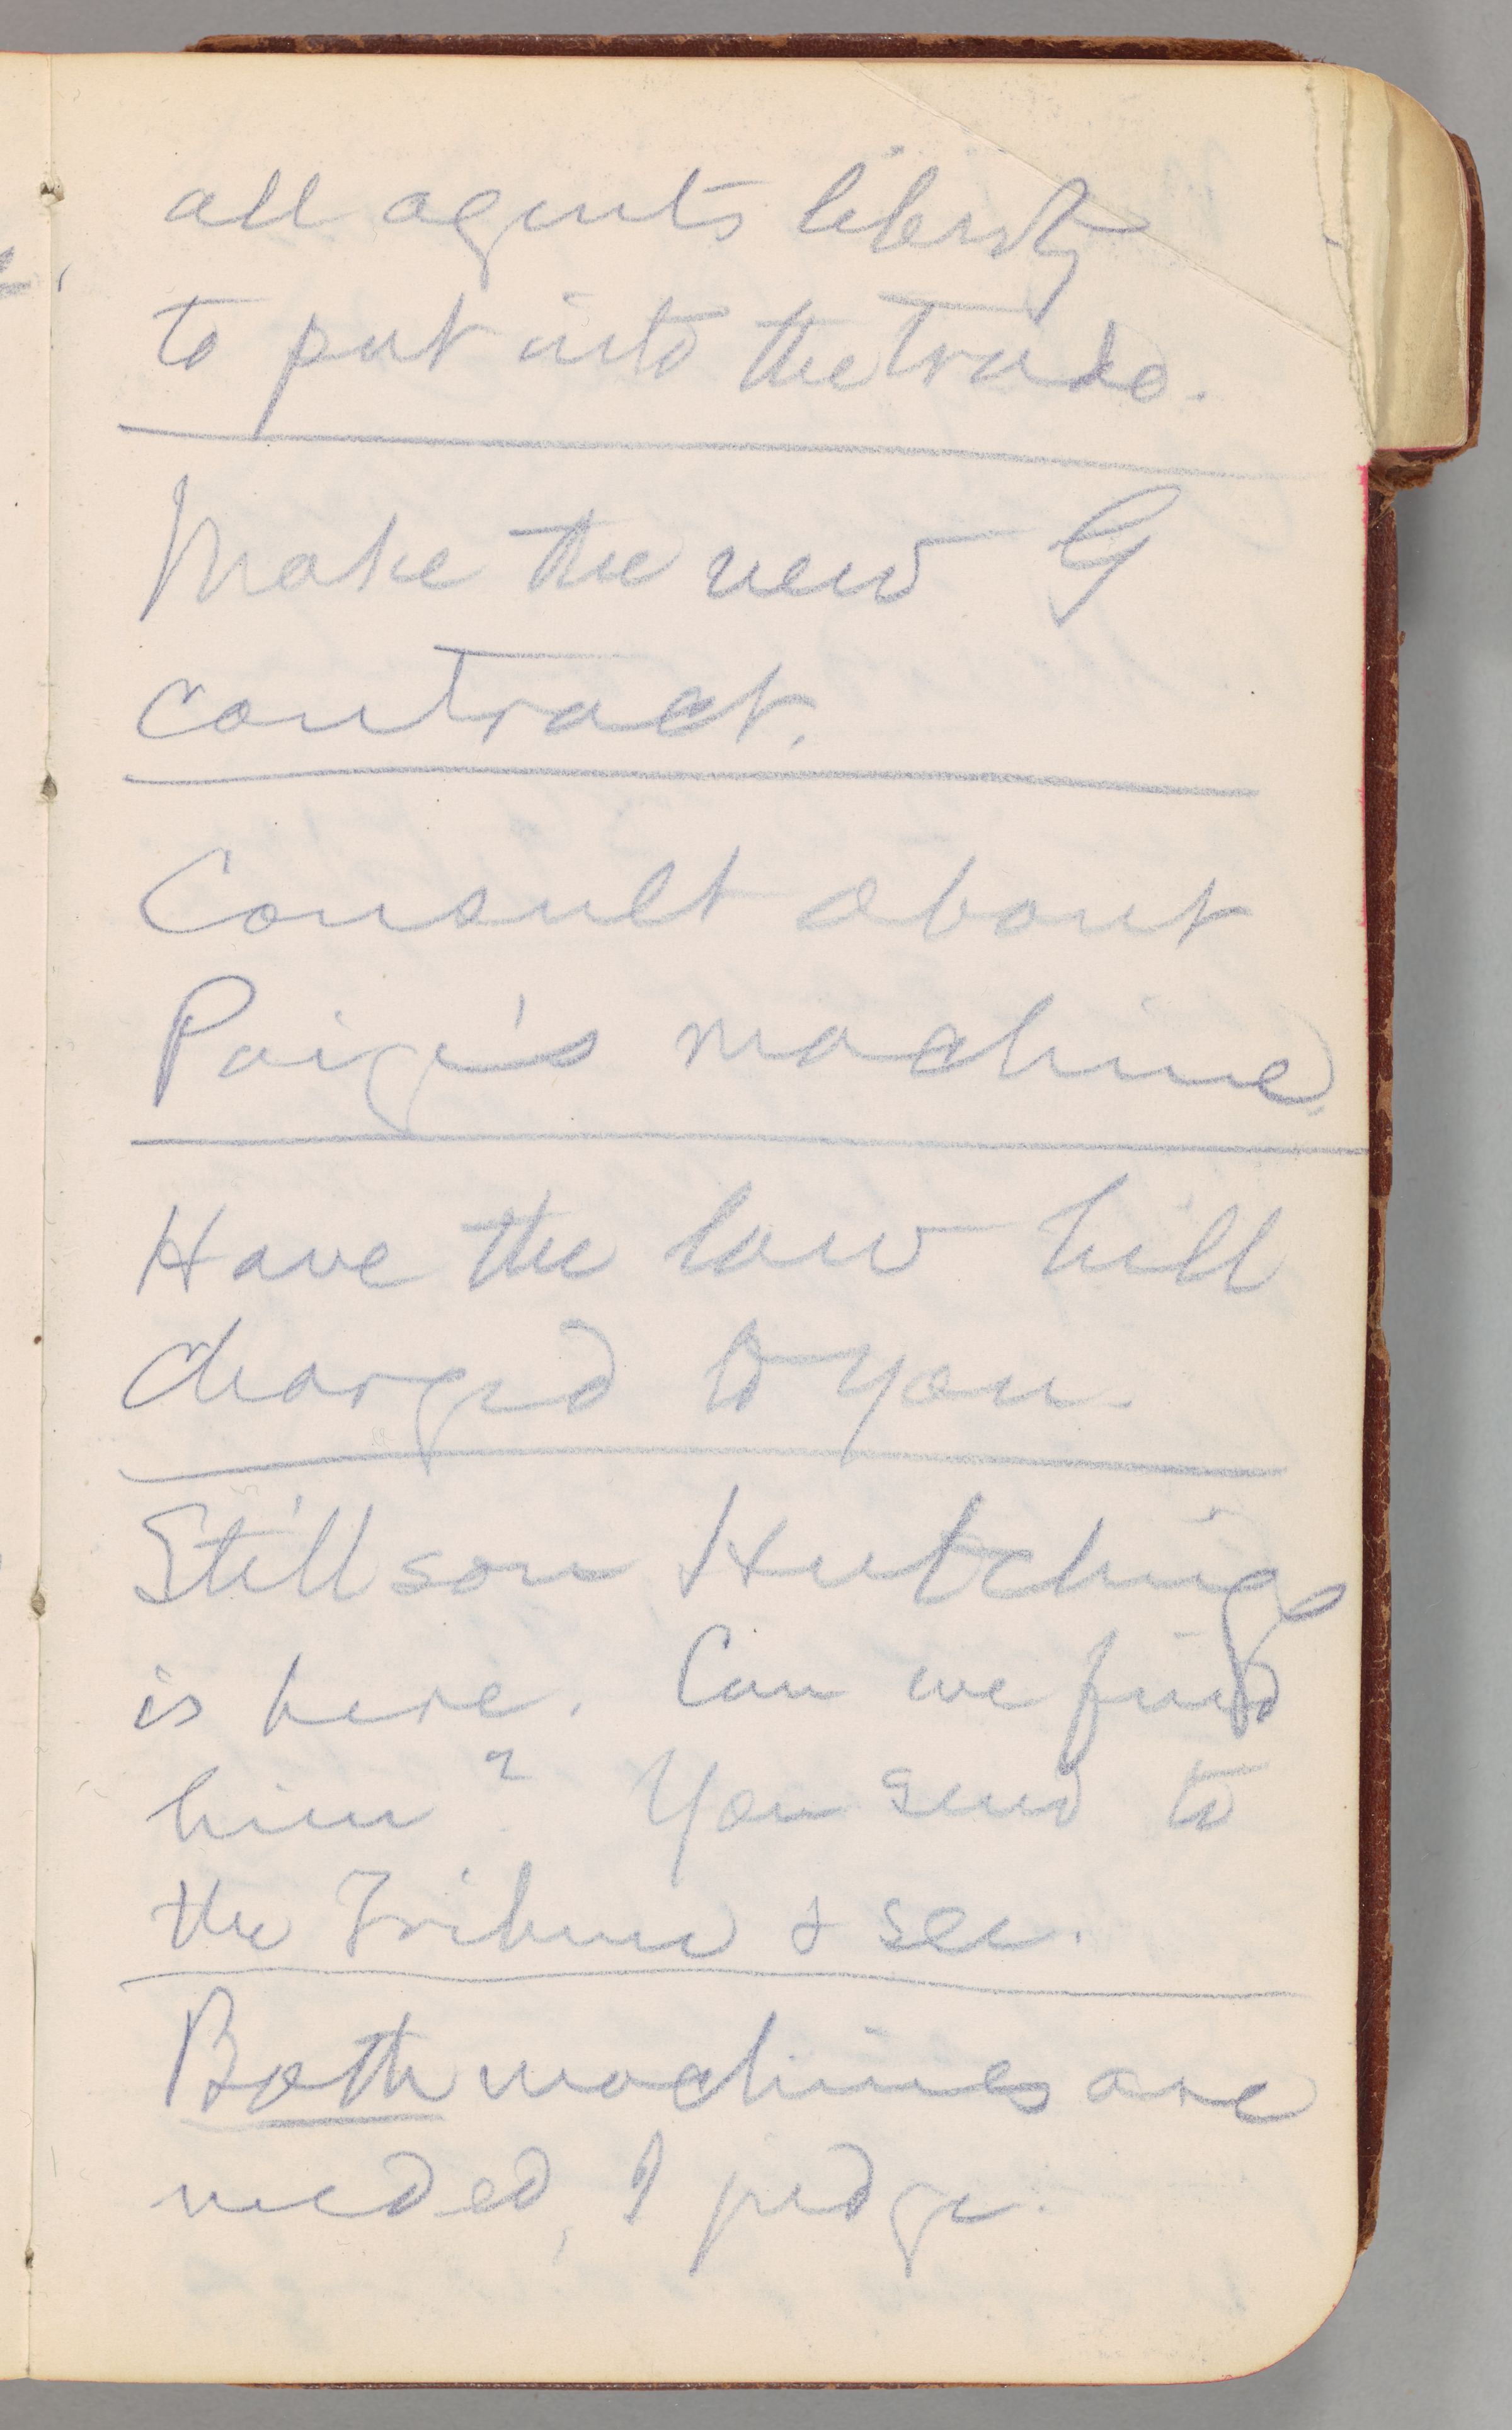 all agents liberty
to put into the trade.
Make the new G
contract.
Consult about
Paige's machine.
Have the law bill
charged to you.
Stillson Hutchings
is here. Can we find
him? You send to
the Tribune & see.
Both machines are
needed, I judge.